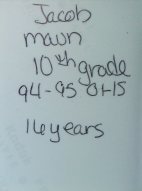 Jacob
maun
10th grade
94-95 01-15
16 years